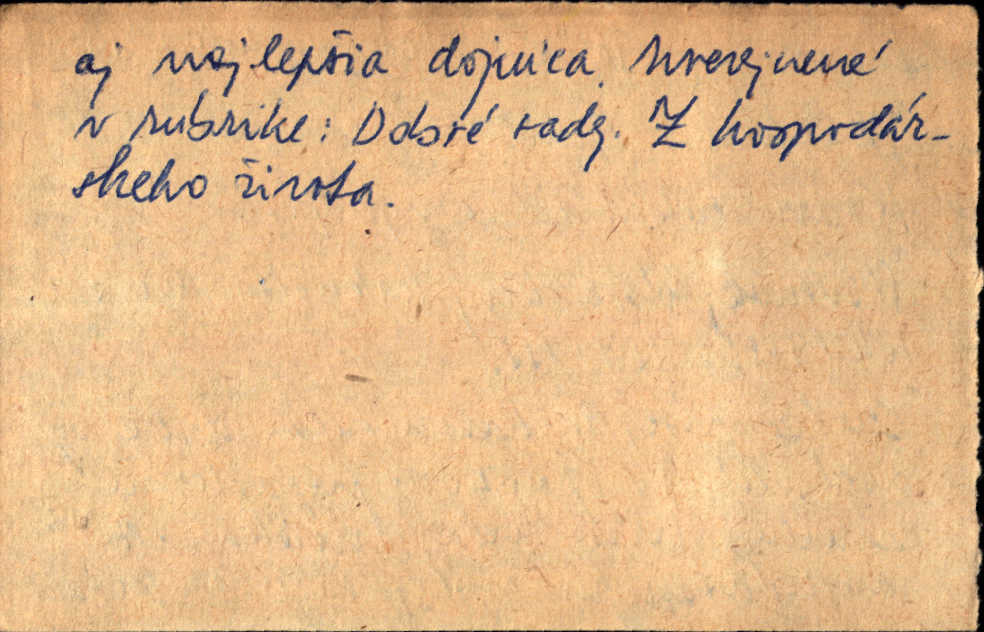 aj najlepšia dojnica. Uverejnené
v rubrike: Dobré rady. Z hospodár-
skeho života.